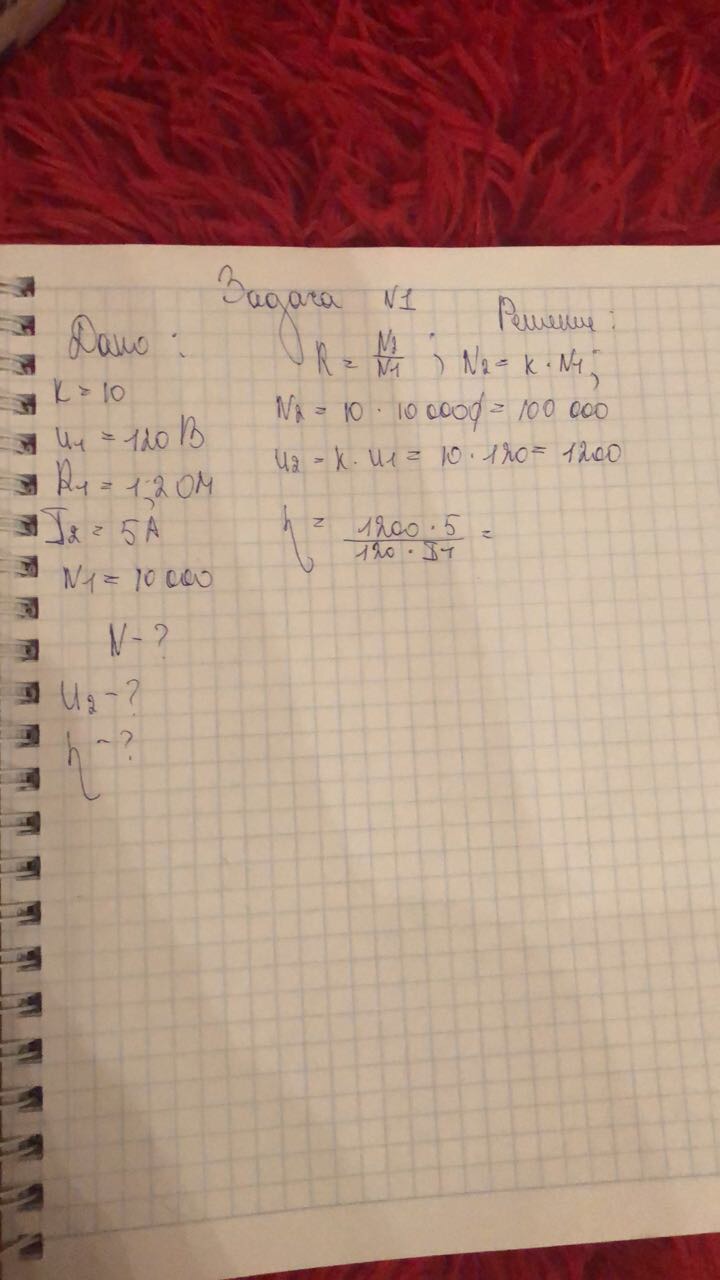 Задача N1
Дано:
Решение:
K = 10
U1 = 120 В
R1 = 1,2 Ом
I2 = 5 А
N1 = 10 000
N - ?
U2 - ?
η - ?
K = N2/N1 ; N2 = K · N1;
N2 = 10 · 10 000 = 100 000
U2 = K · U1 = 10 · 120 = 1200
η = 1200 · 5 / 120 · I1 =